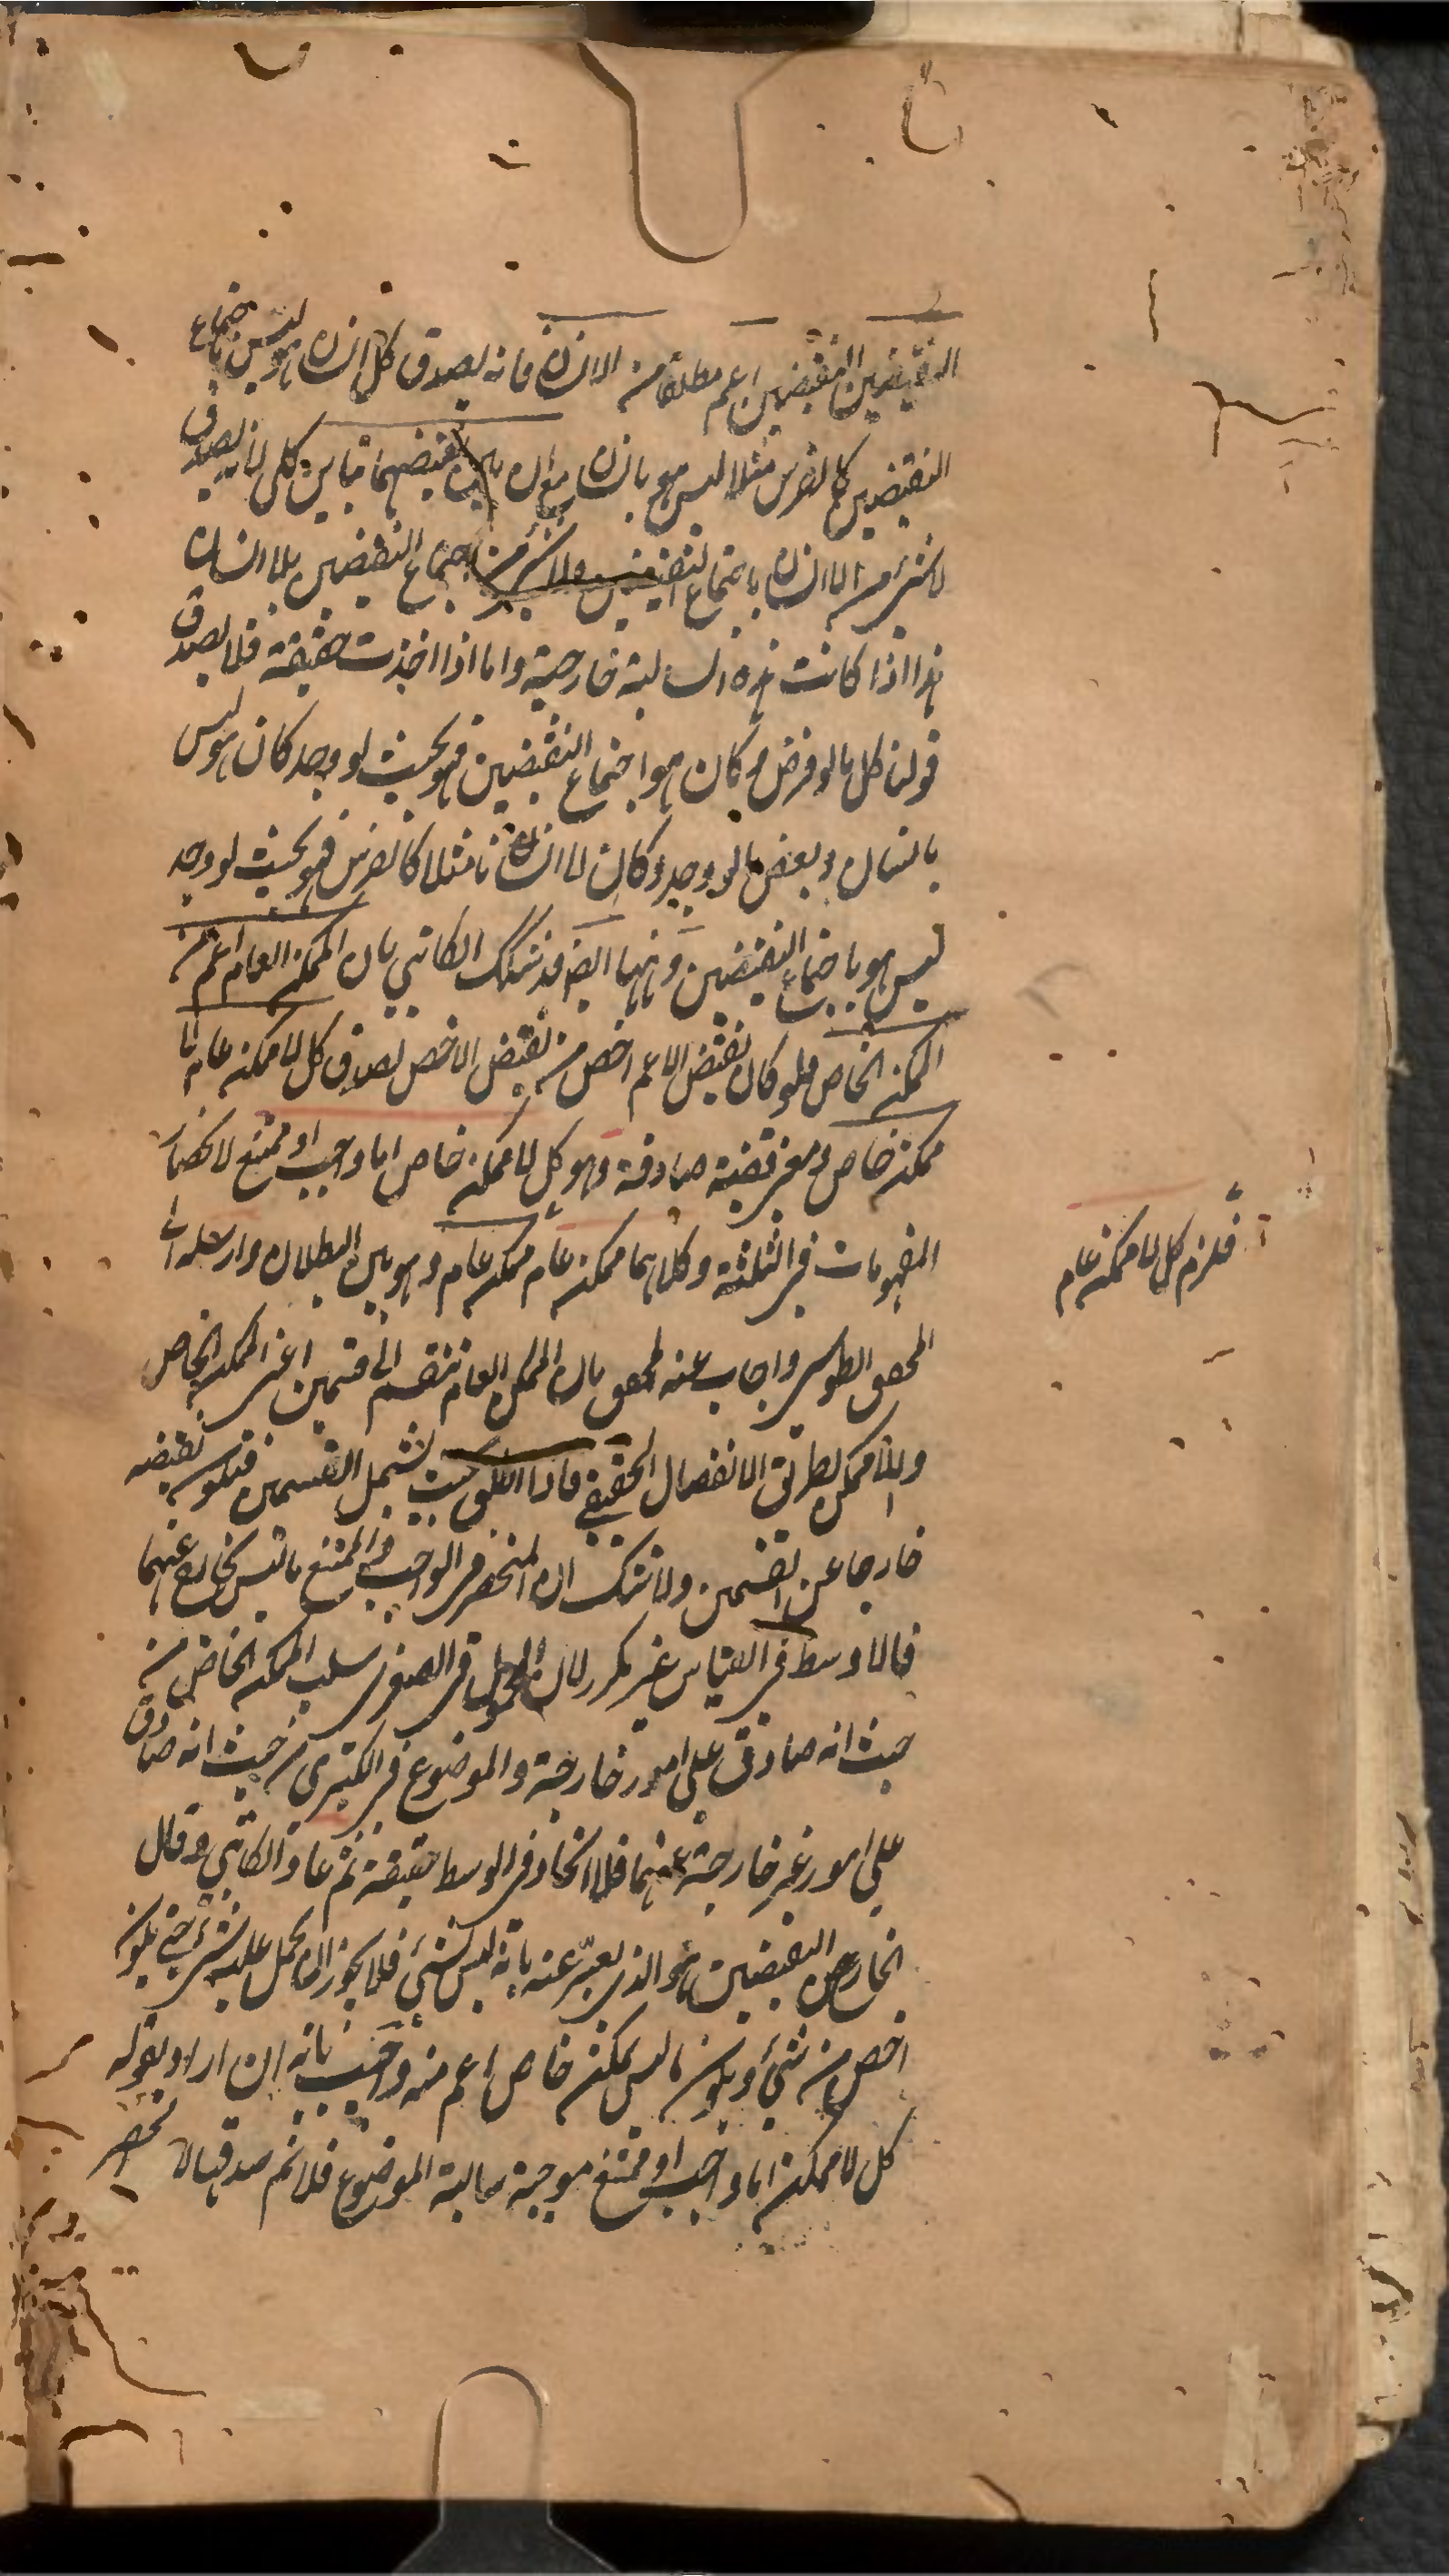 النقيضين النقيضين اعم مطلقا من الانسان فانه يصدق كل انسان هو ليس باجتماع
النقيضين كالفرس مثلا ليس هو بانسان مع ان بين نقيضهما تباين كلى لانه يصدق
لا شئ من اللاانسان باجتماع النقيضين ولا شئ من اجتماع النقيضين بلاانسان
هذا اذا كانت هذه السالبة خارجية واما اذا اخذت حقيقة فلا يصدق
قولنا كل ما لو فرض وكان هو اجتماع النقيضين فهو بحيث لو وجد كان هو ليس
بانسان وبعض ما لو وجد وكان لاانسانا مثلا كالفرس فهو بحيث لو وجد
ليس هو باجتماع النقيضين وههنا ايضا قد شكك الكاتبي بان الممكن العام اعم من
الممكن الخاص فلو كان نقيض الاعم اخص من نقيض الاخص لصدق كل لا ممكن عام لا
ممكن خاص ومعه قضية صادقة وهو كل لا ممكن خاص اما واجب او ممتنع لانحصار
المفهومات فى الثلثة وكلاهما ممكن عام ممكن عام وهو بين البطلان وارسله الى
فلزم كل لا ممكن عام
المحقق الطوسى واجاب عنه المحقق بان الممكن العام تنقسم الى قسمين اعنى الممكن الخاص
واللاممكن بطريق الانفصال الحقيقي فاذا اطلق بحيث يشمل القسمين فيكون نقيضه
خارجا عن القسمين ولا شك ان المنحصر فى الواجب والممتنع ما ليس بخارج عنهما
فالاوسط فى القياس غير مكرر لان المحمول فى الصغرى سلب الممكن الخاص من
حيث انه صادق على امور خارجة والموضوع فى الكبرى من حيث انه صادق
على امور غير خارجة عنهما فلا اتحاد فى الوسط حقيقة ثم عاد الكاتبي وقال
الخارج من النقيضين هو الذى يعبر عنه بانه ليس بشئ فلا يجوز ان يحمل عليه شئ حتى يكون
اخص من شئ ويكون ما ليس بممكن خاص اعم منه واجيب بانه ان اراد بقوله
كل لا ممكن اما واجب او ممتنع موجبة سالبة الموضوع فلا نم صدقها لا نحصر